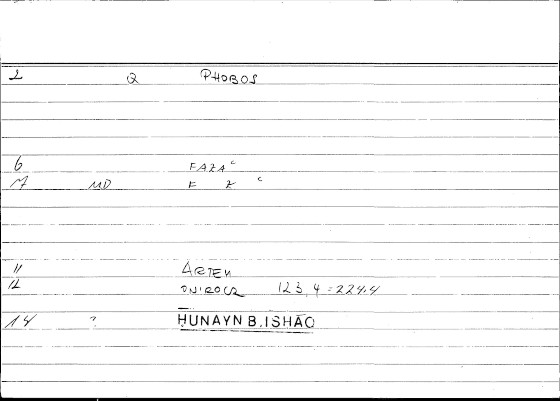 2 Q PHOBOS
6 FAZAᶜ
7 MD F Z ᶜ
11 ARTEM
12 ONIROCR 123,4 = 224.4
14 ? HUNAYN B. ISHĀQ